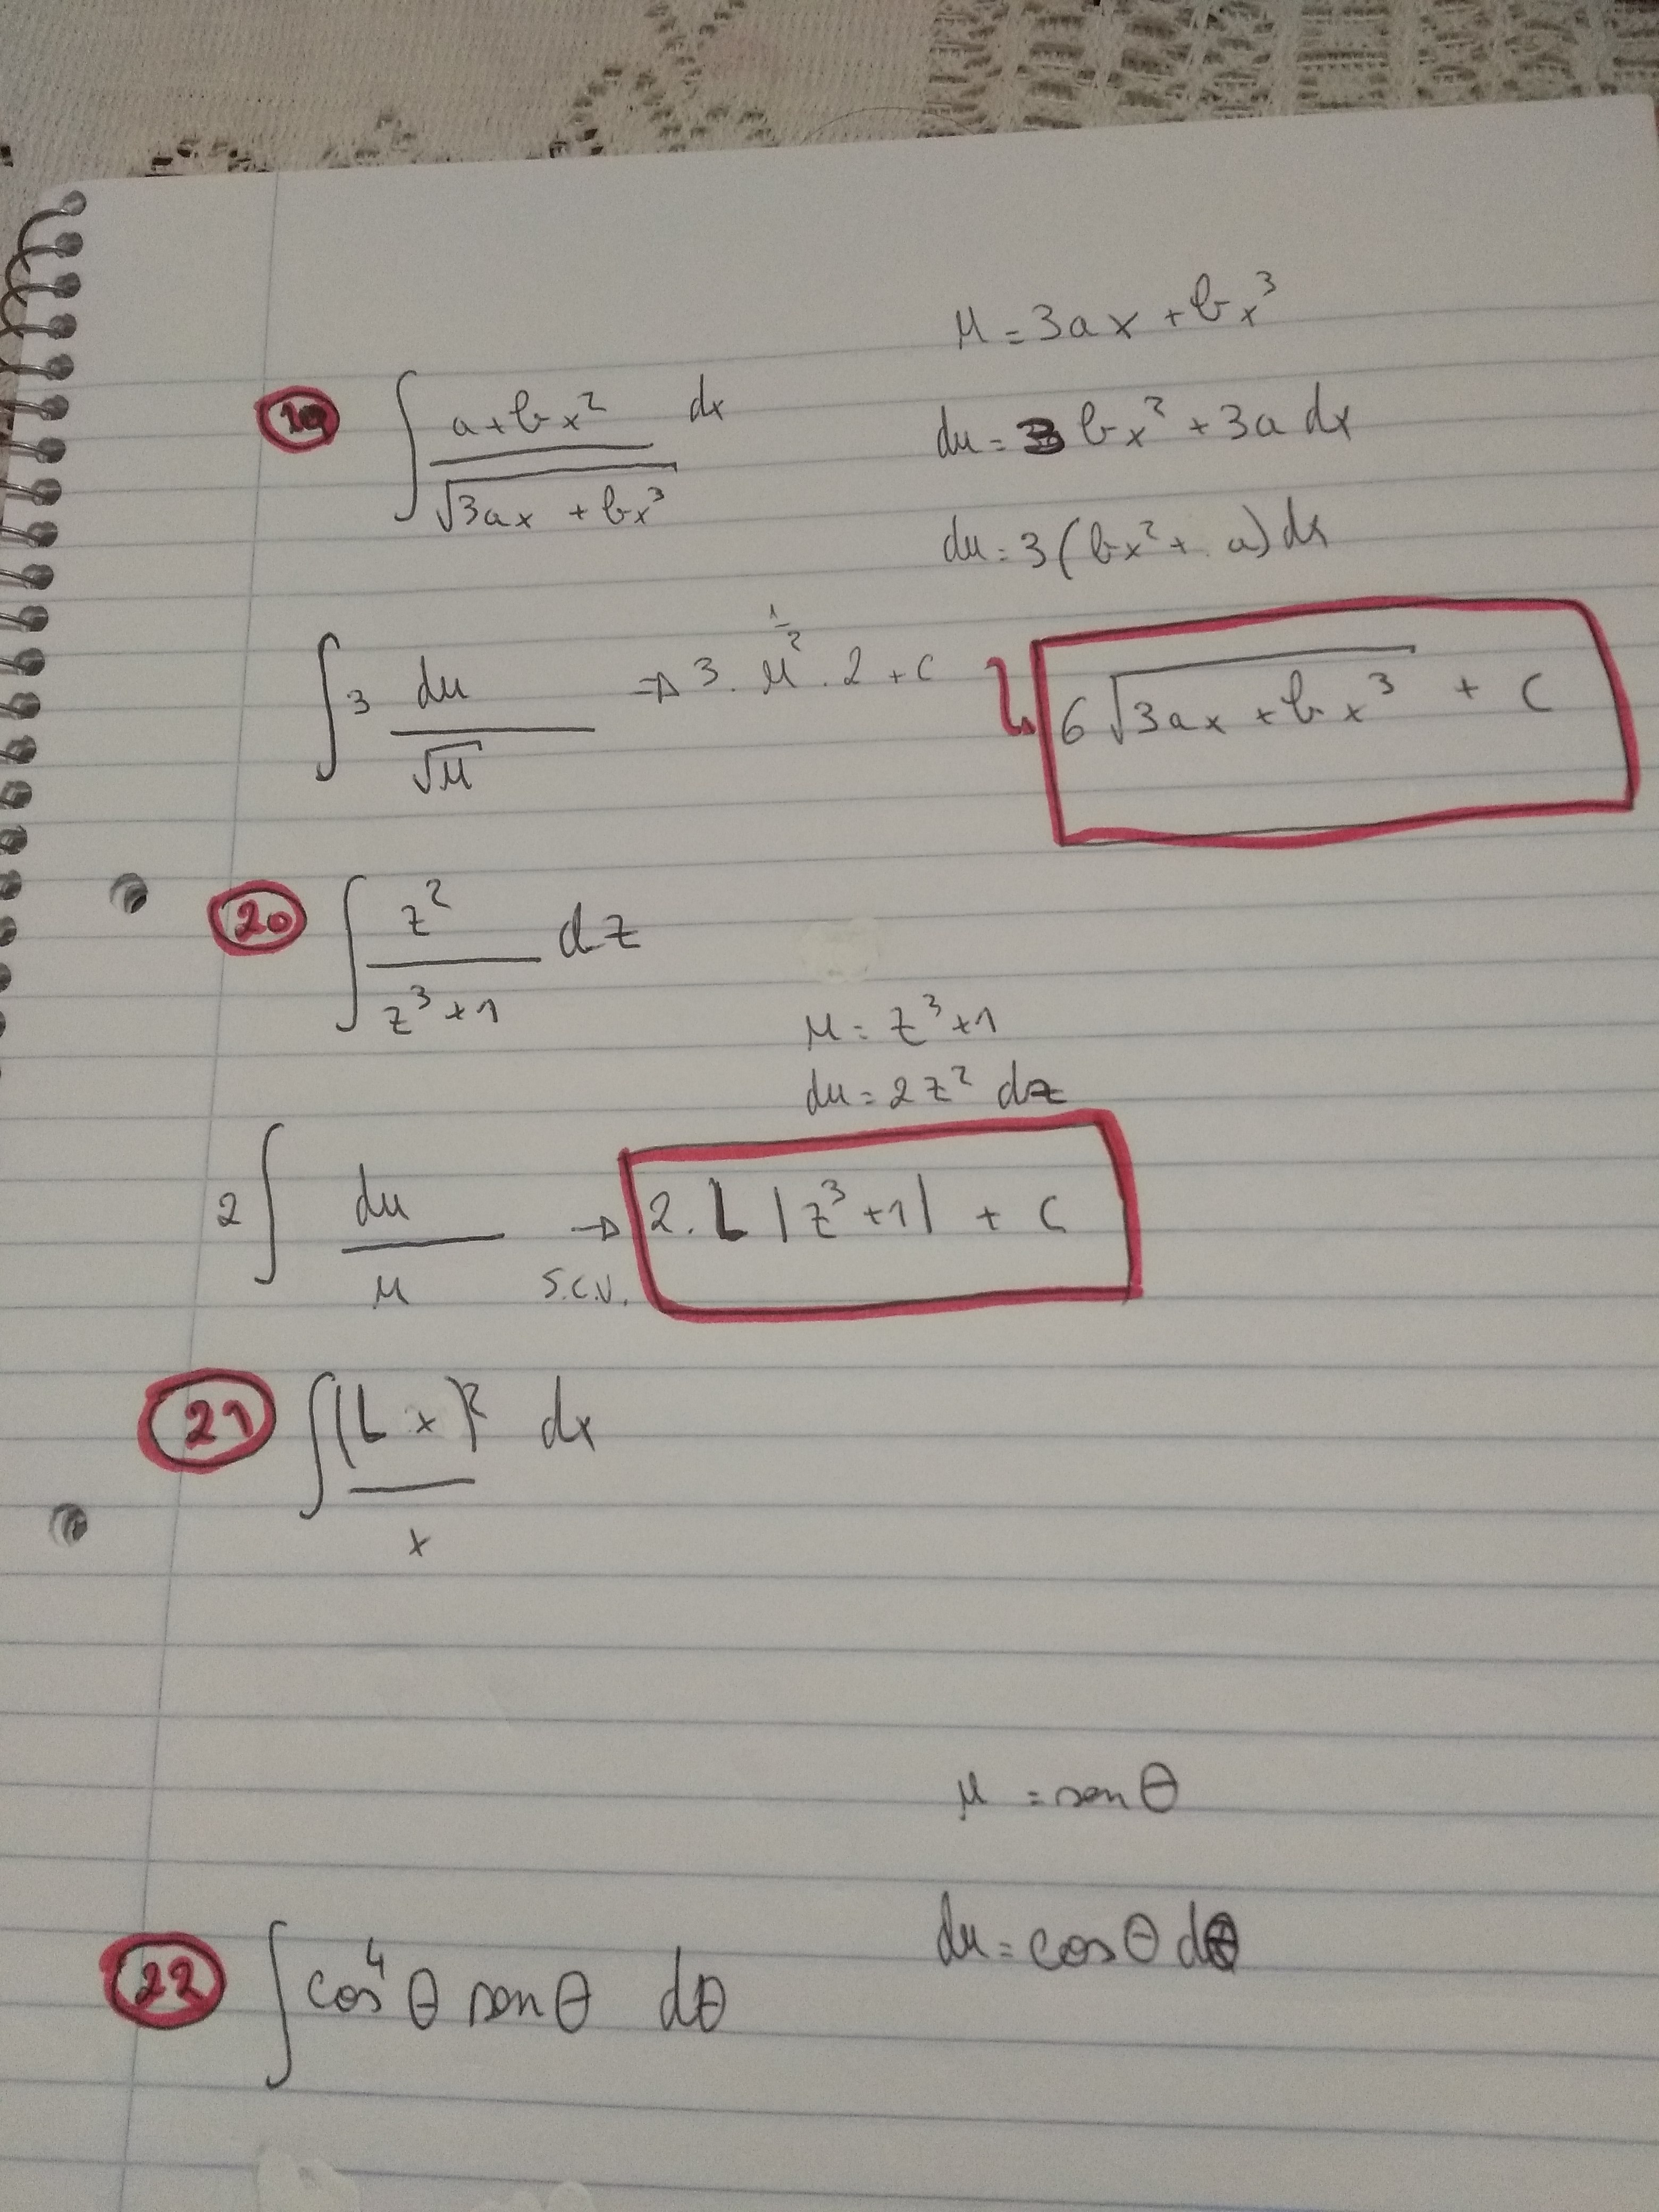 μ = 3ax + bx³
19 ∫ (a + bx²)/√(3ax + bx³) dx
du = 3bx² + 3a dx
du = 3(bx² + a) dx
∫ 3 du/√μ ⇒ 3 · μ^(1/2) · 2 + c ↳ 6√(3ax + bx³) + c
20 ∫ z²/(z³ + 1) dz
μ = z³ + 1
du = 2z² dz
2 ∫ du/μ → S.C.V. 2 · L |z³ + 1| + c
21 ∫ (L x)²/x dx
μ = sen θ
du = cos θ dθ
22 ∫ cos⁴ θ sen θ dθ